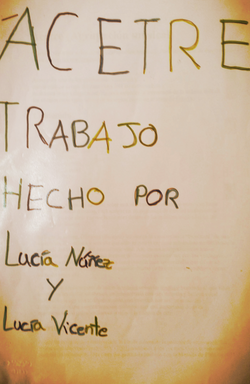 ACETRE
TRABAJO
HECHO POR
Lucía Núñez
Y
Lucía Vicente